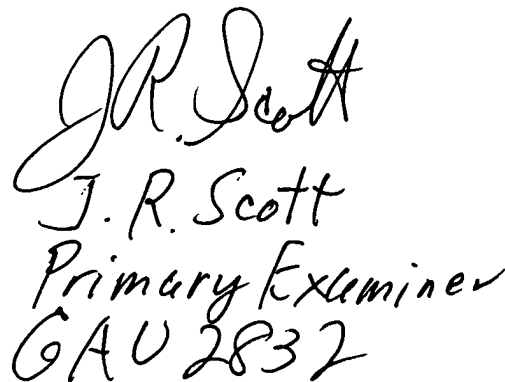 J.R. Scott
J. R. Scott
Primary Examiner
GAU 2832